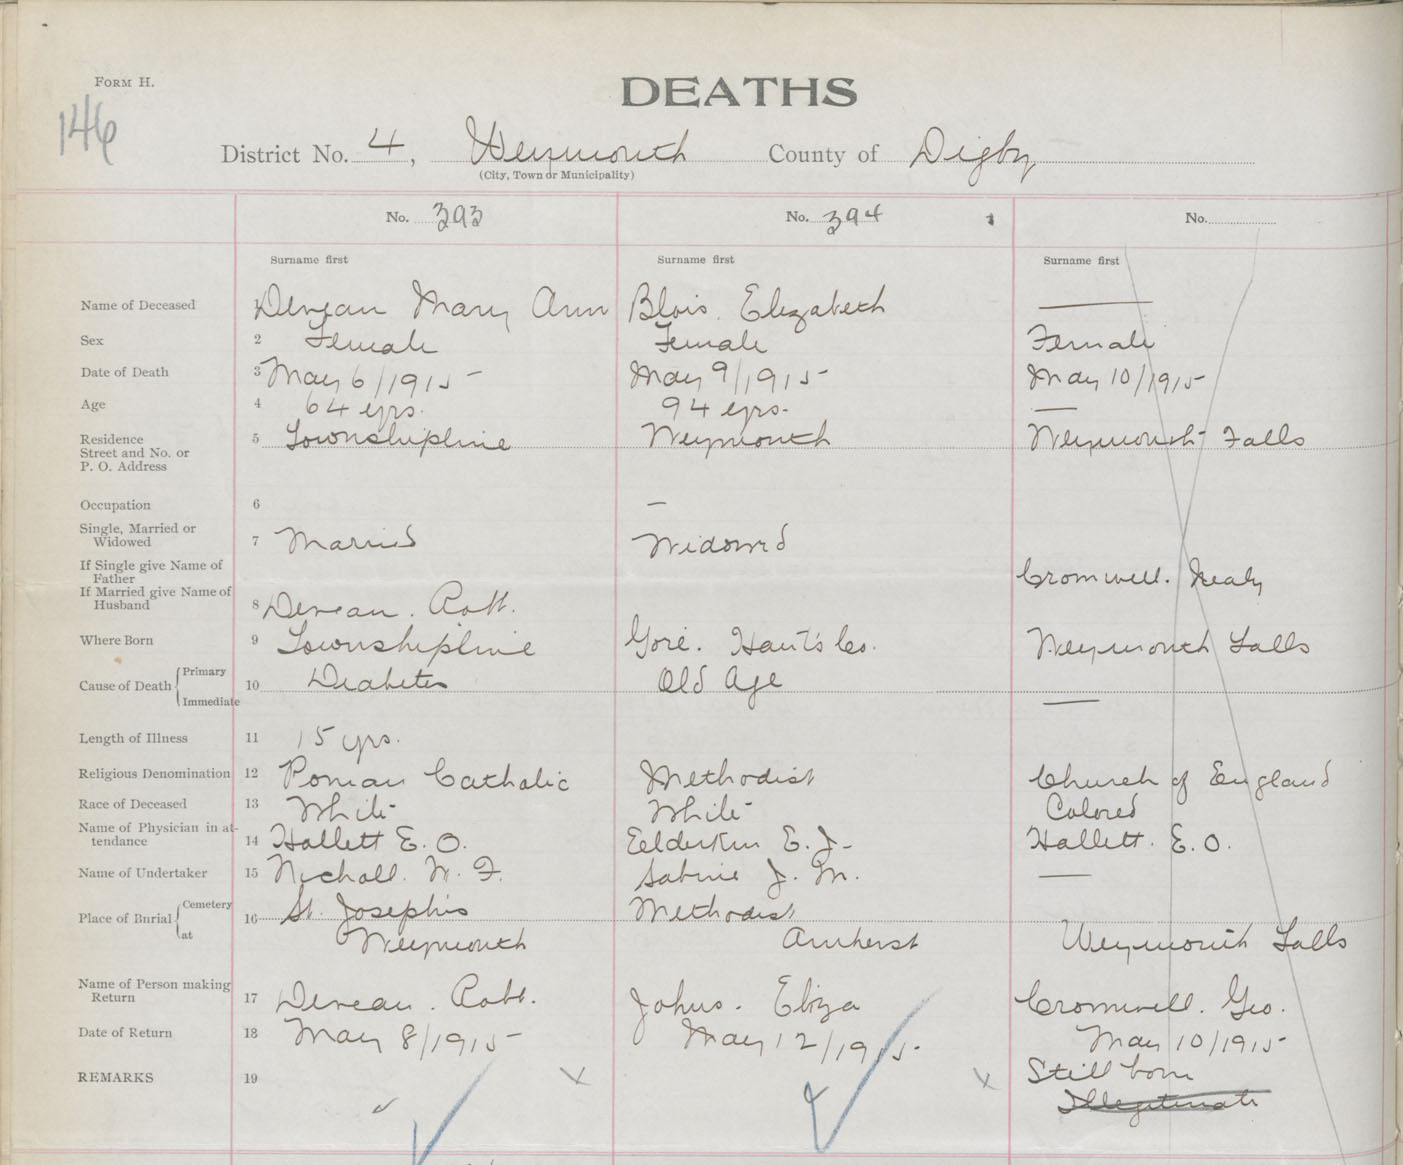 FORM H.
146
DEATHS
District No. 4, Weymouth County of Digby
(City, Town or Municipality)
No. 393 No. 394 No.
Surname first Surname first Surname first
Name of Deceased 1 Deveau Mary Ann Blois. Elizabeth —
Sex 2 Female Female Female
Date of Death 3 May 6/1915 May 9/1915 May 10/1915
Age 4 64 yrs. 94 yrs. —
Residence 5 Townshipline Weymouth Weymouth Falls
Street and No. or
P. O. Address
Occupation 6 —
Single, Married or
Widowed 7 Married Widowed
If Single give Name of
Father Cromwell.
If Married give Name of
Husband 8 Deveau. Robt.
Where Born 9 Townshipline Gore. Hant's Co. Weymouth Falls
Cause of Death Primary 10 Diabetes Old Age
Immediate —
Length of Illness 11 15 yrs.
Religious Denomination 12 Roman Catholic Methodist Church of England
Race of Deceased 13 White White Colored
Name of Physician in at-
tendance 14 Hallett E. O. Eelderkin E. J. Hallett. E. O.
Name of Undertaker 15 Nichall. W. F. Sabine J. M. —
Place of Burial Cemetery 16 St. Joseph's Methodist
at Weymouth Amherst Weymouth Falls
Name of Person making
Return 17 Deveau. Robt. Johns. Eliza Cromwell. Geo.
Date of Return 18 May 8/1915 May 12/1915 May 10/1915
REMARKS 19 Still born
Illegitimate